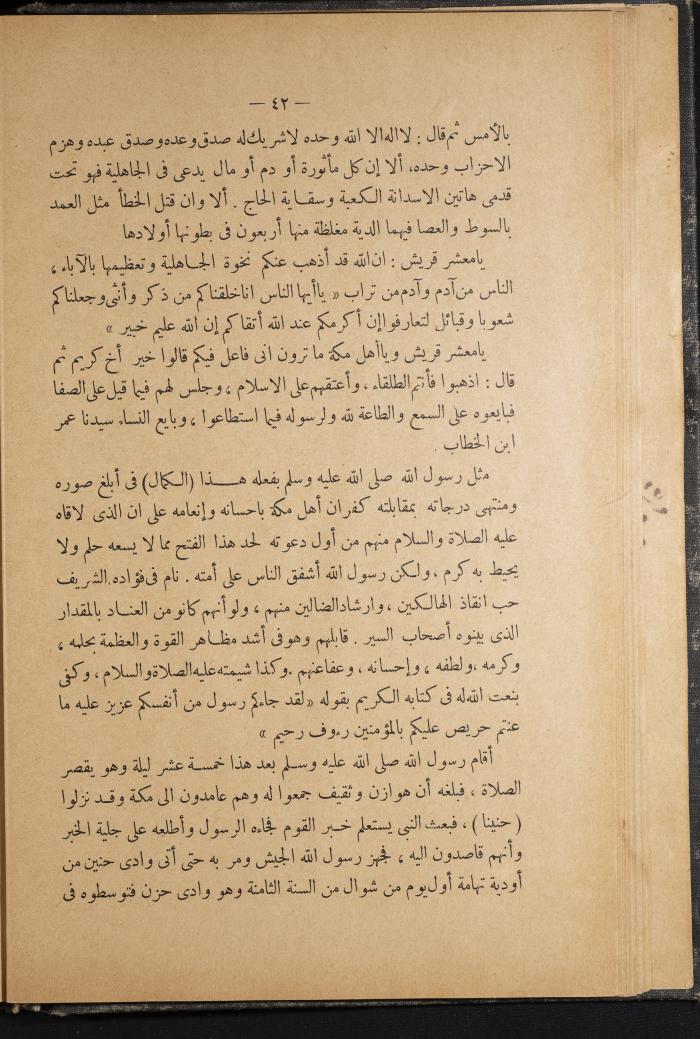 — ٤٢ —
بالأمس ثم قال : لا اله الا الله وحده لا شريك له صدق وعده وصدق عبده وهزم
الاحزاب وحده، ألا إن كل مأثورة أو دم أو مال يدعى فى الجاهلية فهو تحت
قدمى هاتين الاسدانة الكعبة وسقاية الحاج . ألا وان قتل الخطأ مثل العمد
بالسوط والعصا فيهما الدية مغلظة منها أربعون فى بطونها أولادها
يامعشر قريش : ان الله قد أذهب عنكم نخوة الجاهلية وتعظيمها بالآباء ،
الناس من آدم وآدم من تراب « ياأيها الناس اناخلقناكم من ذكر وأنثى وجعلناكم
شعوبا وقبائل لتعارفوا إن أكرمكم عند الله أتقاكم إن الله عليم خبير »
يامعشر قريش وياأهل مكة ما ترون انى فاعل فيكم قالوا خير أخ كريم ثم
قال : اذهبوا فأنتم الطلقاء ، وأعتقهم على الاسلام ، وجلس لهم فيما قيل على الصفا
فبايعوه على السمع والطاعة لله ولرسوله فيما استطاعوا ، وبايع النساء سيدنا عمر
ابن الخطاب .
مثل رسول الله صلى الله عليه وسلم بفعله هذا (الكمال) فى أبلغ صوره
ومنتهى درجاته بمقابلته كفران أهل مكة باحسانه وإنعامه على ان الذى لاقاه
عليه الصلاة والسلام منهم من أول دعوته لحد هذا الفتح مما لا يسعه حلم ولا
يحيط به كرم ، ولكن رسول الله أشفق الناس على أمته . نام فى فؤاده الشريف
حب انقاذ الهالكين ، وارشاد الضالين منهم ، ولو أنهم كانو من العناد بالمقدار
الذى بينوه أصحاب السير . قابلهم وهو فى أشد مظاهر القوة والعظمة بحلمه ،
وكرمه ، ولطفه ، وإحسانه ، وعفا عنهم . وكذا شيمته عليه الصلاة والسلام ، وكفى
بنعت الله له فى كتابه الكريم بقوله « لقد جاءكم رسول من أنفسكم عزيز عليه ما
عنتم حريص عليكم بالمؤمنين رءوف رحيم »
أقام رسول الله صلى الله عليه وسلم بعد هذا خمسة عشر ليلة وهو يقصر
الصلاة ، فبلغه أن هوازن وثقيف جمعوا له وهم عامدون الى مكة وقد نزلوا
( حنينا ) ، فبعث النبى يستعلم خبر القوم فجاءه الرسول وأطلعه على جلية الخبر
وأنهم قاصدون اليه ، فجهز رسول الله الجيش ومر به حتى أتى وادى حنين من
أودية تهامة أول يوم من شوال من السنة الثامنة وهو وادى حزن فتوسطوه فى